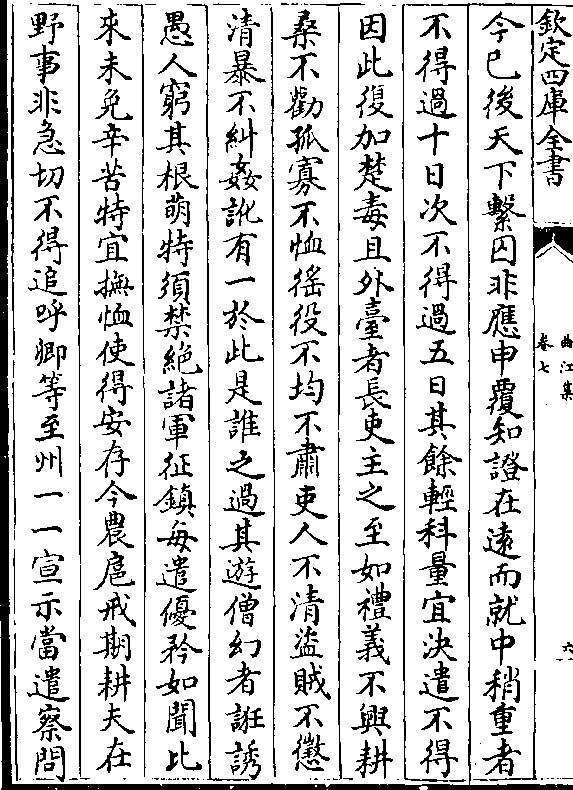 欽定四庫全書
曲江集
卷七
六
今已後天下繫囚非應申覆知證在遠而就中稍重者
不得過十日次不得過五日其餘輕科量宜決遣不得
因此復加楚毒且外臺者長吏主之至如禮義不興耕
桑不勸孤寡不恤徭役不均不肅吏人不清盜賊不懲
清暴不糾姦訛有一於此是誰之過其遊僧幻者誑誘
愚人窮其根萌特須禁絕諸軍征鎮每遣優矜如聞比
來未免辛苦特宜撫恤使得安存今農扈戒期耕夫在
野事非急切不得追呼卿等至州一一宣示當遣察問